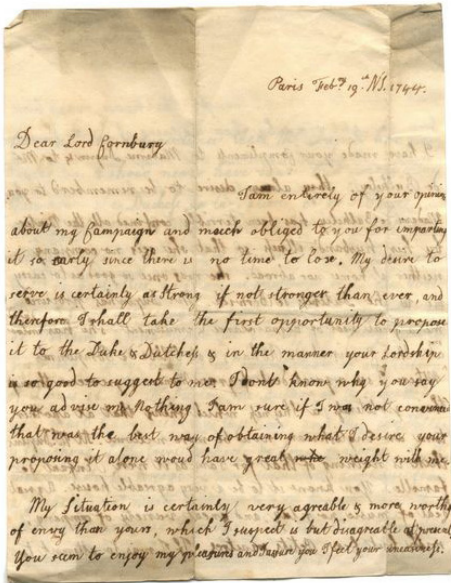 Paris Feb.ry 19.th NS. 1744.
Dear Lord Cornbury
I am entirely of your opinion
about my Campaign and much obliged to you for imparting
it so early since there is no time to lose. My desire to
serve is certainly as strong if not stronger than ever, and
therefore I shall take the first opportunity to propose
it to the Duke & Dutchess & in the manner your Lordship
is so good to suggest to me. I dont know why you say
you advise me Nothing, I am sure if I was not convinced
that was the best way of obtaining what I desire your
proposing it alone woud have great weight with me.
My Situation is certainly very agreable & more worthy
of envy than yours, which I suspect is but disagreable at present
You seem to enjoy my pleasures and I assure you I feel your uneasiness.